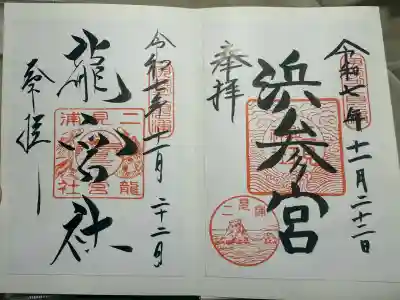 令和七年 十一月二十二日
浜参宮
奉拝
二見浦
令和七年 十一月二十二日
龍宮社
二見浦 龍宮社
奉拝